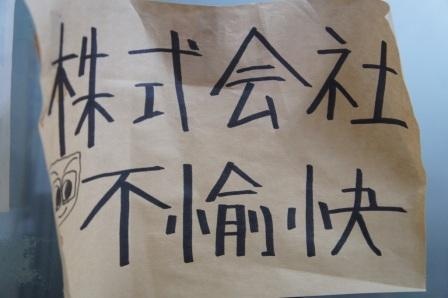 株式会社
不愉快